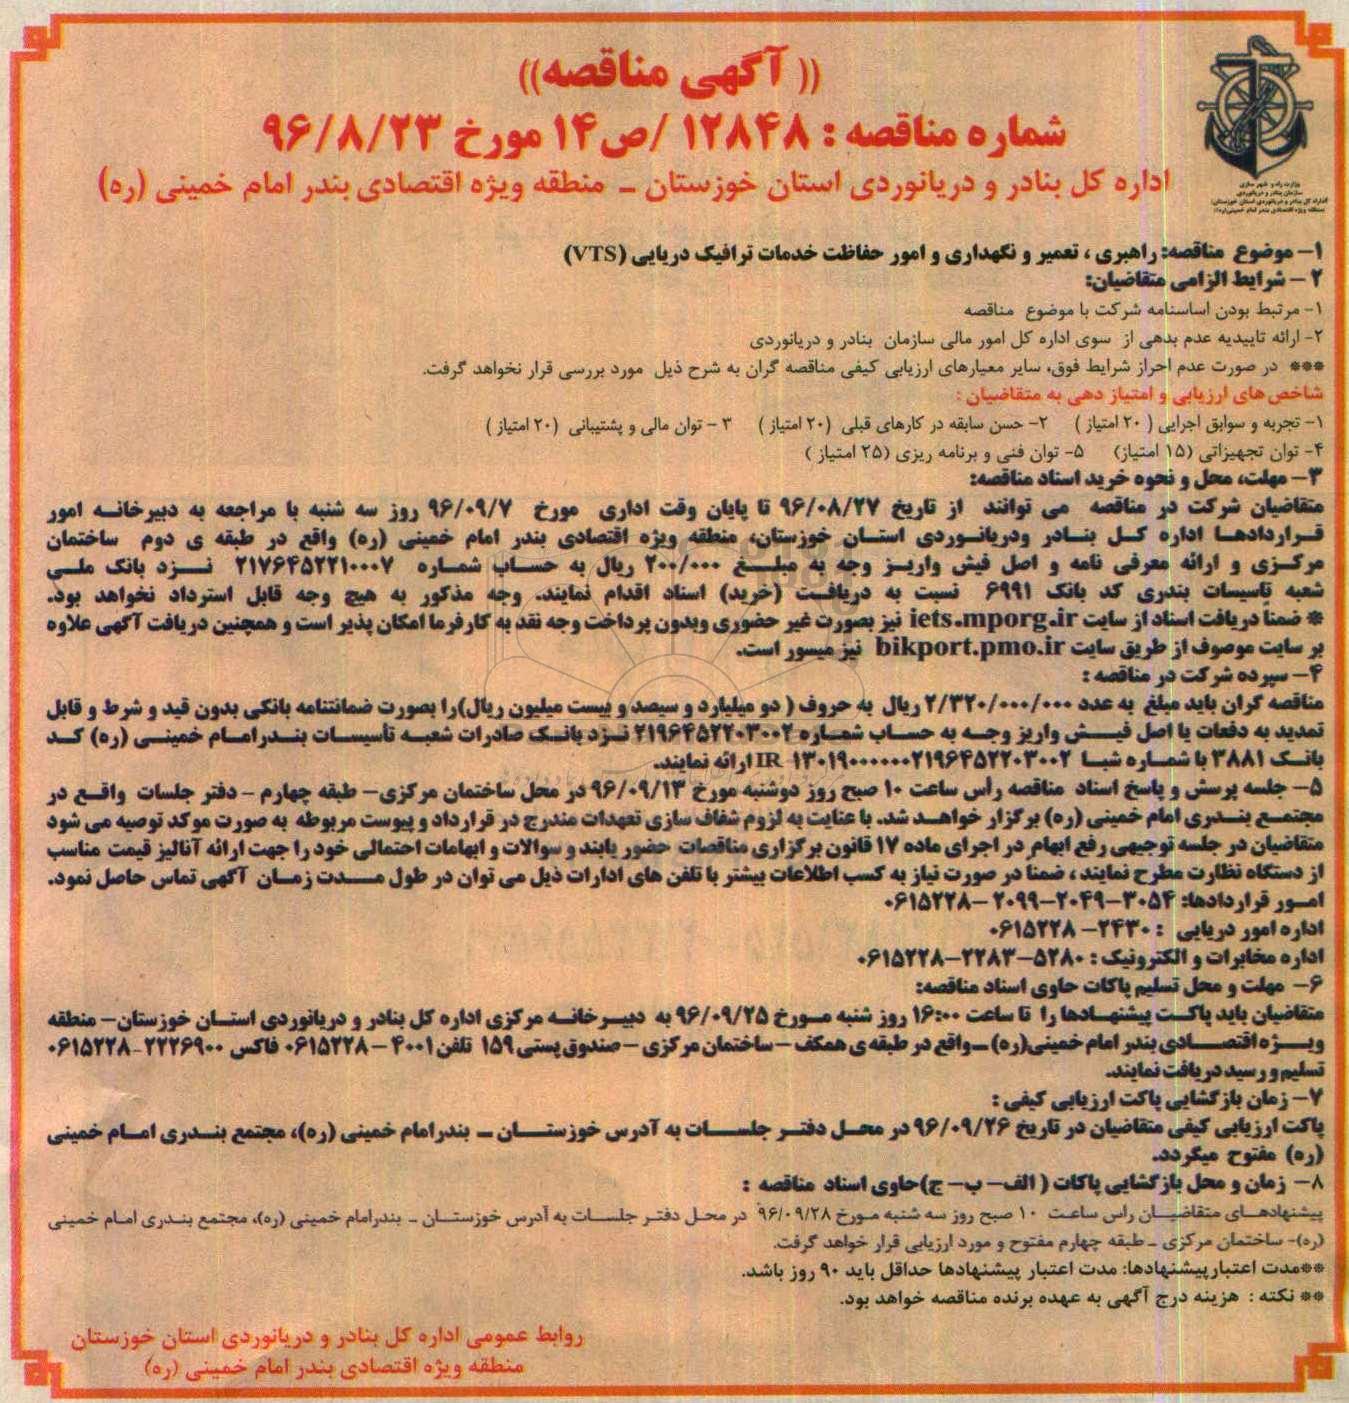 (( آگهی مناقصه))
شماره مناقصه : ۱۲۸۴۸ /ص۱۴ مورخ ۹۶/۸/۲۳
اداره کل بنادر و دریانوردی استان خوزستان ـ منطقه ویژه اقتصادی بندر امام خمینی (ره)
وزارت راه و شهر سازی
سازمان بنادر و دریانوردی
اداره کل بنادر و دریانوردی استان خوزستان
منطقه ویژه اقتصادی بندر امام خمینی(ره)
۱- موضوع مناقصه: راهبری ، تعمیر و نگهداری و امور حفاظت خدمات ترافیک دریایی (VTS)
۲ - شرایط الزامی متقاضیان:
۱- مرتبط بودن اساسنامه شرکت با موضوع مناقصه
۲- ارائه تاییدیه عدم بدهی از سوی اداره کل امور مالی سازمان بنادر و دریانوردی
*** در صورت عدم احراز شرایط فوق، سایر معیارهای ارزیابی کیفی مناقصه گران به شرح ذیل مورد بررسی قرار نخواهد گرفت.
شاخص های ارزیابی و امتیاز دهی به متقاضیان :
۱- تجربه و سوابق اجرایی ( ۲۰ امتیاز ) ۲- حسن سابقه در کارهای قبلی (۲۰ امتیاز ) ۳ - توان مالی و پشتیبانی (۲۰ امتیاز )
۴- توان تجهیزاتی (۱۵ امتیاز) ۵- توان فنی و برنامه ریزی (۲۵ امتیاز )
۳- مهلت، محل و نحوه خرید اسناد مناقصه:
متقاضیان شرکت در مناقصه می توانند از تاریخ ۹۶/۰۸/۲۷ تا پایان وقت اداری مورخ ۹۶/۰۹/۷ روز سه شنبه با مراجعه به دبیرخانه امور
قراردادها اداره کل بنادر ودریانوردی استان خوزستان، منطقه ویژه اقتصادی بندر امام خمینی (ره) واقع در طبقه ی دوم ساختمان
مرکزی و ارائه معرفی نامه و اصل فیش واریز وجه به مبلغ ۲۰۰/۰۰۰ ریال به حساب شماره ۲۱۷۶۴۵۲۲۱۰۰۰۷ نزد بانک ملی
شعبه تأسیسات بندری کد بانک ۶۹۹۱ نسبت به دریافت (خرید) اسناد اقدام نمایند. وجه مذکور به هیچ وجه قابل استرداد نخواهد بود.
* ضمناً دریافت اسناد از سایت iets.mporg.ir نیز بصورت غیر حضوری وبدون پرداخت وجه نقد به کارفرما امکان پذیر است و همچنین دریافت آگهی علاوه
بر سایت موصوف از طریق سایت bikport.pmo.ir نیز میسور است.
۴- سپرده شرکت در مناقصه :
مناقصه گران باید مبلغ به عدد ۲/۳۲۰/۰۰۰/۰۰۰ ریال به حروف ( دو میلیارد و سیصد و بیست میلیون ریال)را بصورت ضمانتنامه بانکی بدون قید و شرط و قابل
تمدید به دفعات یا اصل فیش واریز وجه به حساب شماره ۲۱۹۶۴۵۲۲۰۳۰۰۲ نزد بانک صادرات شعبه تأسیسات بندرامام خمینی (ره) کد
بانک ۳۸۸۱ با شماره شبا IR ۱۳۰۱۹۰۰۰۰۰۰۰۲۱۹۶۴۵۲۲۰۳۰۰۲ ارائه نمایند.
۵- جلسه پرسش و پاسخ اسناد مناقصه رأس ساعت ۱۰ صبح روز دوشنبه مورخ ۹۶/۰۹/۱۳ در محل ساختمان مرکزی- طبقه چهارم - دفتر جلسات واقع در
مجتمع بندری امام خمینی (ره) برگزار خواهد شد. با عنایت به لزوم شفاف سازی تعهدات مندرج در قرارداد و پیوست مربوطه به صورت موکد توصیه می شود
متقاضیان در جلسه توجیهی رفع ابهام در اجرای ماده ۱۷ قانون برگزاری مناقصات حضور یابند و سوالات و ابهامات احتمالی خود را جهت ارائه آنالیز قیمت مناسب
از دستگاه نظارت مطرح نمایند ، ضمناً در صورت نیاز به کسب اطلاعات بیشتر با تلفن های ادارات ذیل می توان در طول مدت زمان آگهی تماس حاصل نمود.
امور قراردادها: ۳۰۵۴-۲۰۴۹-۲۰۹۹ -۰۶۱۵۲۲۸
اداره امور دریایی : ۲۴۳۰- ۰۶۱۵۲۲۸
اداره مخابرات و الکترونیک : ۵۲۸۰-۲۲۸۳-۰۶۱۵۲۲۸
۶- مهلت و محل تسلیم پاکات حاوی اسناد مناقصه:
متقاضیان باید پاکت پیشنهادها را تا ساعت ۱۶:۰۰ روز شنبه مورخ ۹۶/۰۹/۲۵ به دبیرخانه مرکزی اداره کل بنادر و دریانوردی استان خوزستان- منطقه
ویژه اقتصادی بندر امام خمینی(ره) ـ واقع در طبقه ی همکف - ساختمان مرکزی - صندوق پستی ۱۵۹ تلفن ۴۰۰۱ - ۰۶۱۵۲۲۸ فاکس ۲۲۲۶۹۰۰-۰۶۱۵۲۲۸
تسلیم و رسید دریافت نمایند.
۷- زمان بازگشایی پاکت ارزیابی کیفی :
پاکت ارزیابی کیفی متقاضیان در تاریخ ۹۶/۰۹/۲۶ در محل دفتر جلسات به آدرس خوزستان ـ بندرامام خمینی (ره)، مجتمع بندری امام خمینی
(ره) مفتوح میگردد.
۸- زمان و محل بازگشایی پاکات ( الف- ب- ج)حاوی اسناد مناقصه :
پیشنهادهای متقاضیان راس ساعت ۱۰ صبح روز سه شنبه مورخ ۹۶/۰۹/۲۸ در محل دفتر جلسات به آدرس خوزستان ـ بندرامام خمینی (ره)، مجتمع بندری امام خمینی
(ره)- ساختمان مرکزی ـ طبقه چهارم مفتوح و مورد ارزیابی قرار خواهد گرفت.
**مدت اعتبارپیشنهادها: مدت اعتبار پیشنهادها حداقل باید ۹۰ روز باشد.
** نکته : هزینه درج آگهی به عهده برنده مناقصه خواهد بود.
روابط عمومی اداره کل بنادر و دریانوردی استان خوزستان
منطقه ویژه اقتصادی بندر امام خمینی (ره)